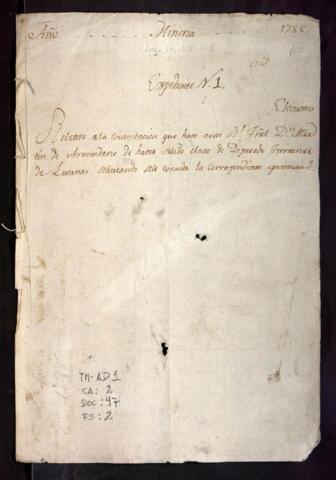 Año . . . . Mineria . . . . 1788.
63
Expediente N. 1.
Elecciones
Relativo a la contestacion que hace este Rl. Tral. Dn. Mar
tin de Armendaris de haver salido electo de Diputado Territorial
de Lucanas solicitando sele conceda la correspondiente aprovacion.
TM-AD1
CA: 2
DOC: 47
FS: 2